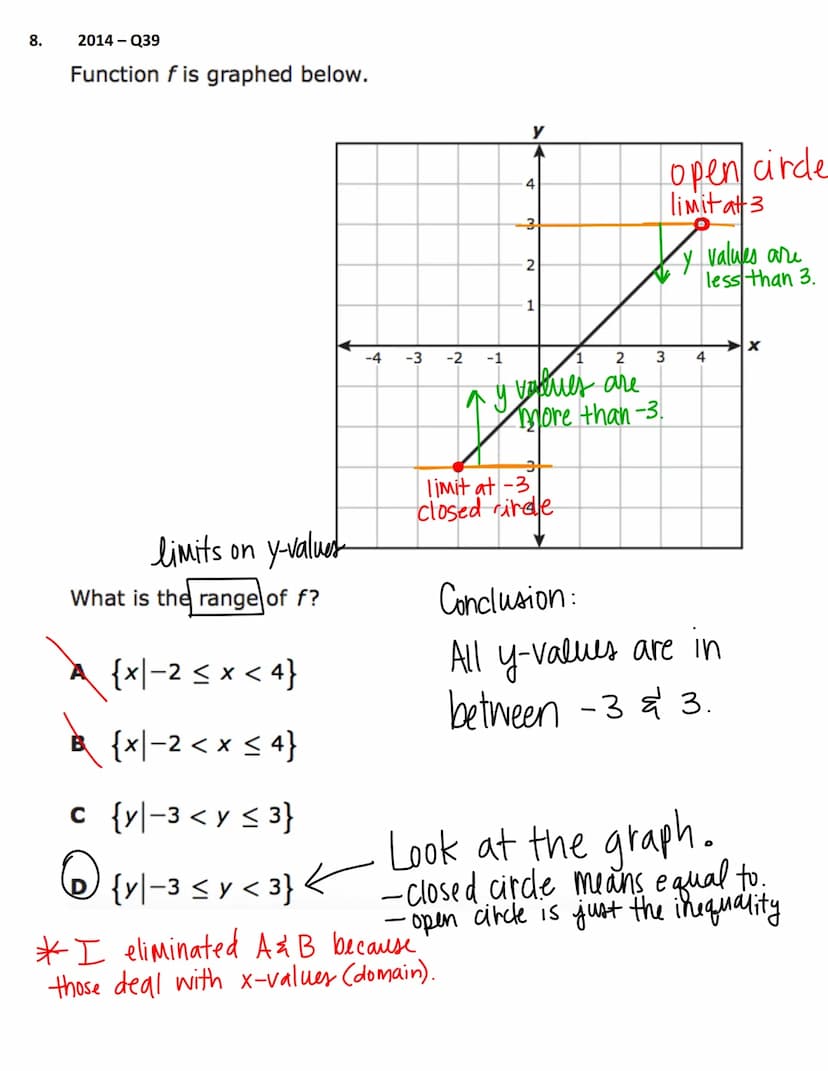 8. 2014 – Q39
Function f is graphed below.
y
4
open circle
limit at 3
3
2
y values are
less than 3.
1
x
-4 -3 -2 -1 1 2 3 4
y values are
more than -3.
2
3
limit at -3
closed circle
4
limits on y-values
What is the range of f?
Conclusion:
All y-values are in
between -3 & 3.
A {x|−2 ≤ x < 4}
B {x|−2 < x ≤ 4}
C {y|−3 < y ≤ 3}
D {y|−3 ≤ y < 3}
Look at the graph.
- closed circle means equal to.
- open circle is just the inequality
* I eliminated A & B because
those deal with x-values (domain).